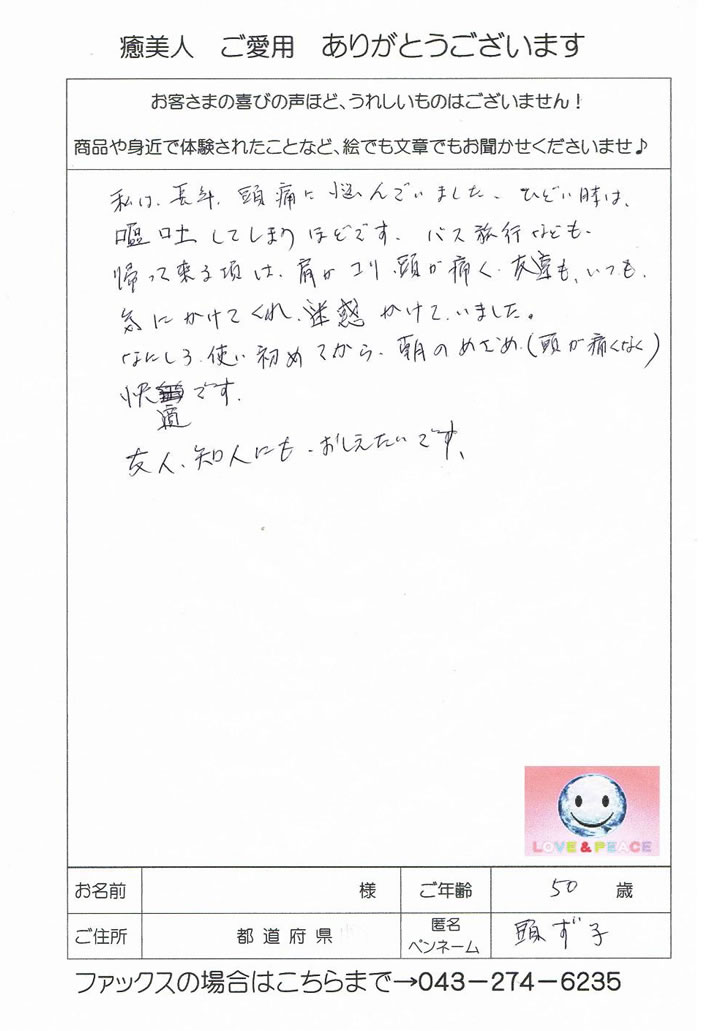 癒美人 ご愛用 ありがとうございます
お客さまの喜びの声ほど、うれしいものはございません！
商品や身近で体験されたことなど、絵でも文章でもお聞かせくださいませ♪
私は、長年、頭痛に悩んでいました、ひどい時は、
嘔吐してしまうほどです、バス旅行なども、
帰って来る項は、肩がコリ、頭が痛く、友達も、いつも、
気にかけてくれ、迷惑かけていました。
なにしろ、使い初めてから、朝のめざめ、(頭が痛くなく)
快適です。
友人、知人にも、おしえたいです、
LOVE & PEACE
お名前 様 ご年齢 50 歳
ご住所 都道府県 匿名ペンネーム 頭ず子
ファックスの場合はこちらまで→043－274－6235